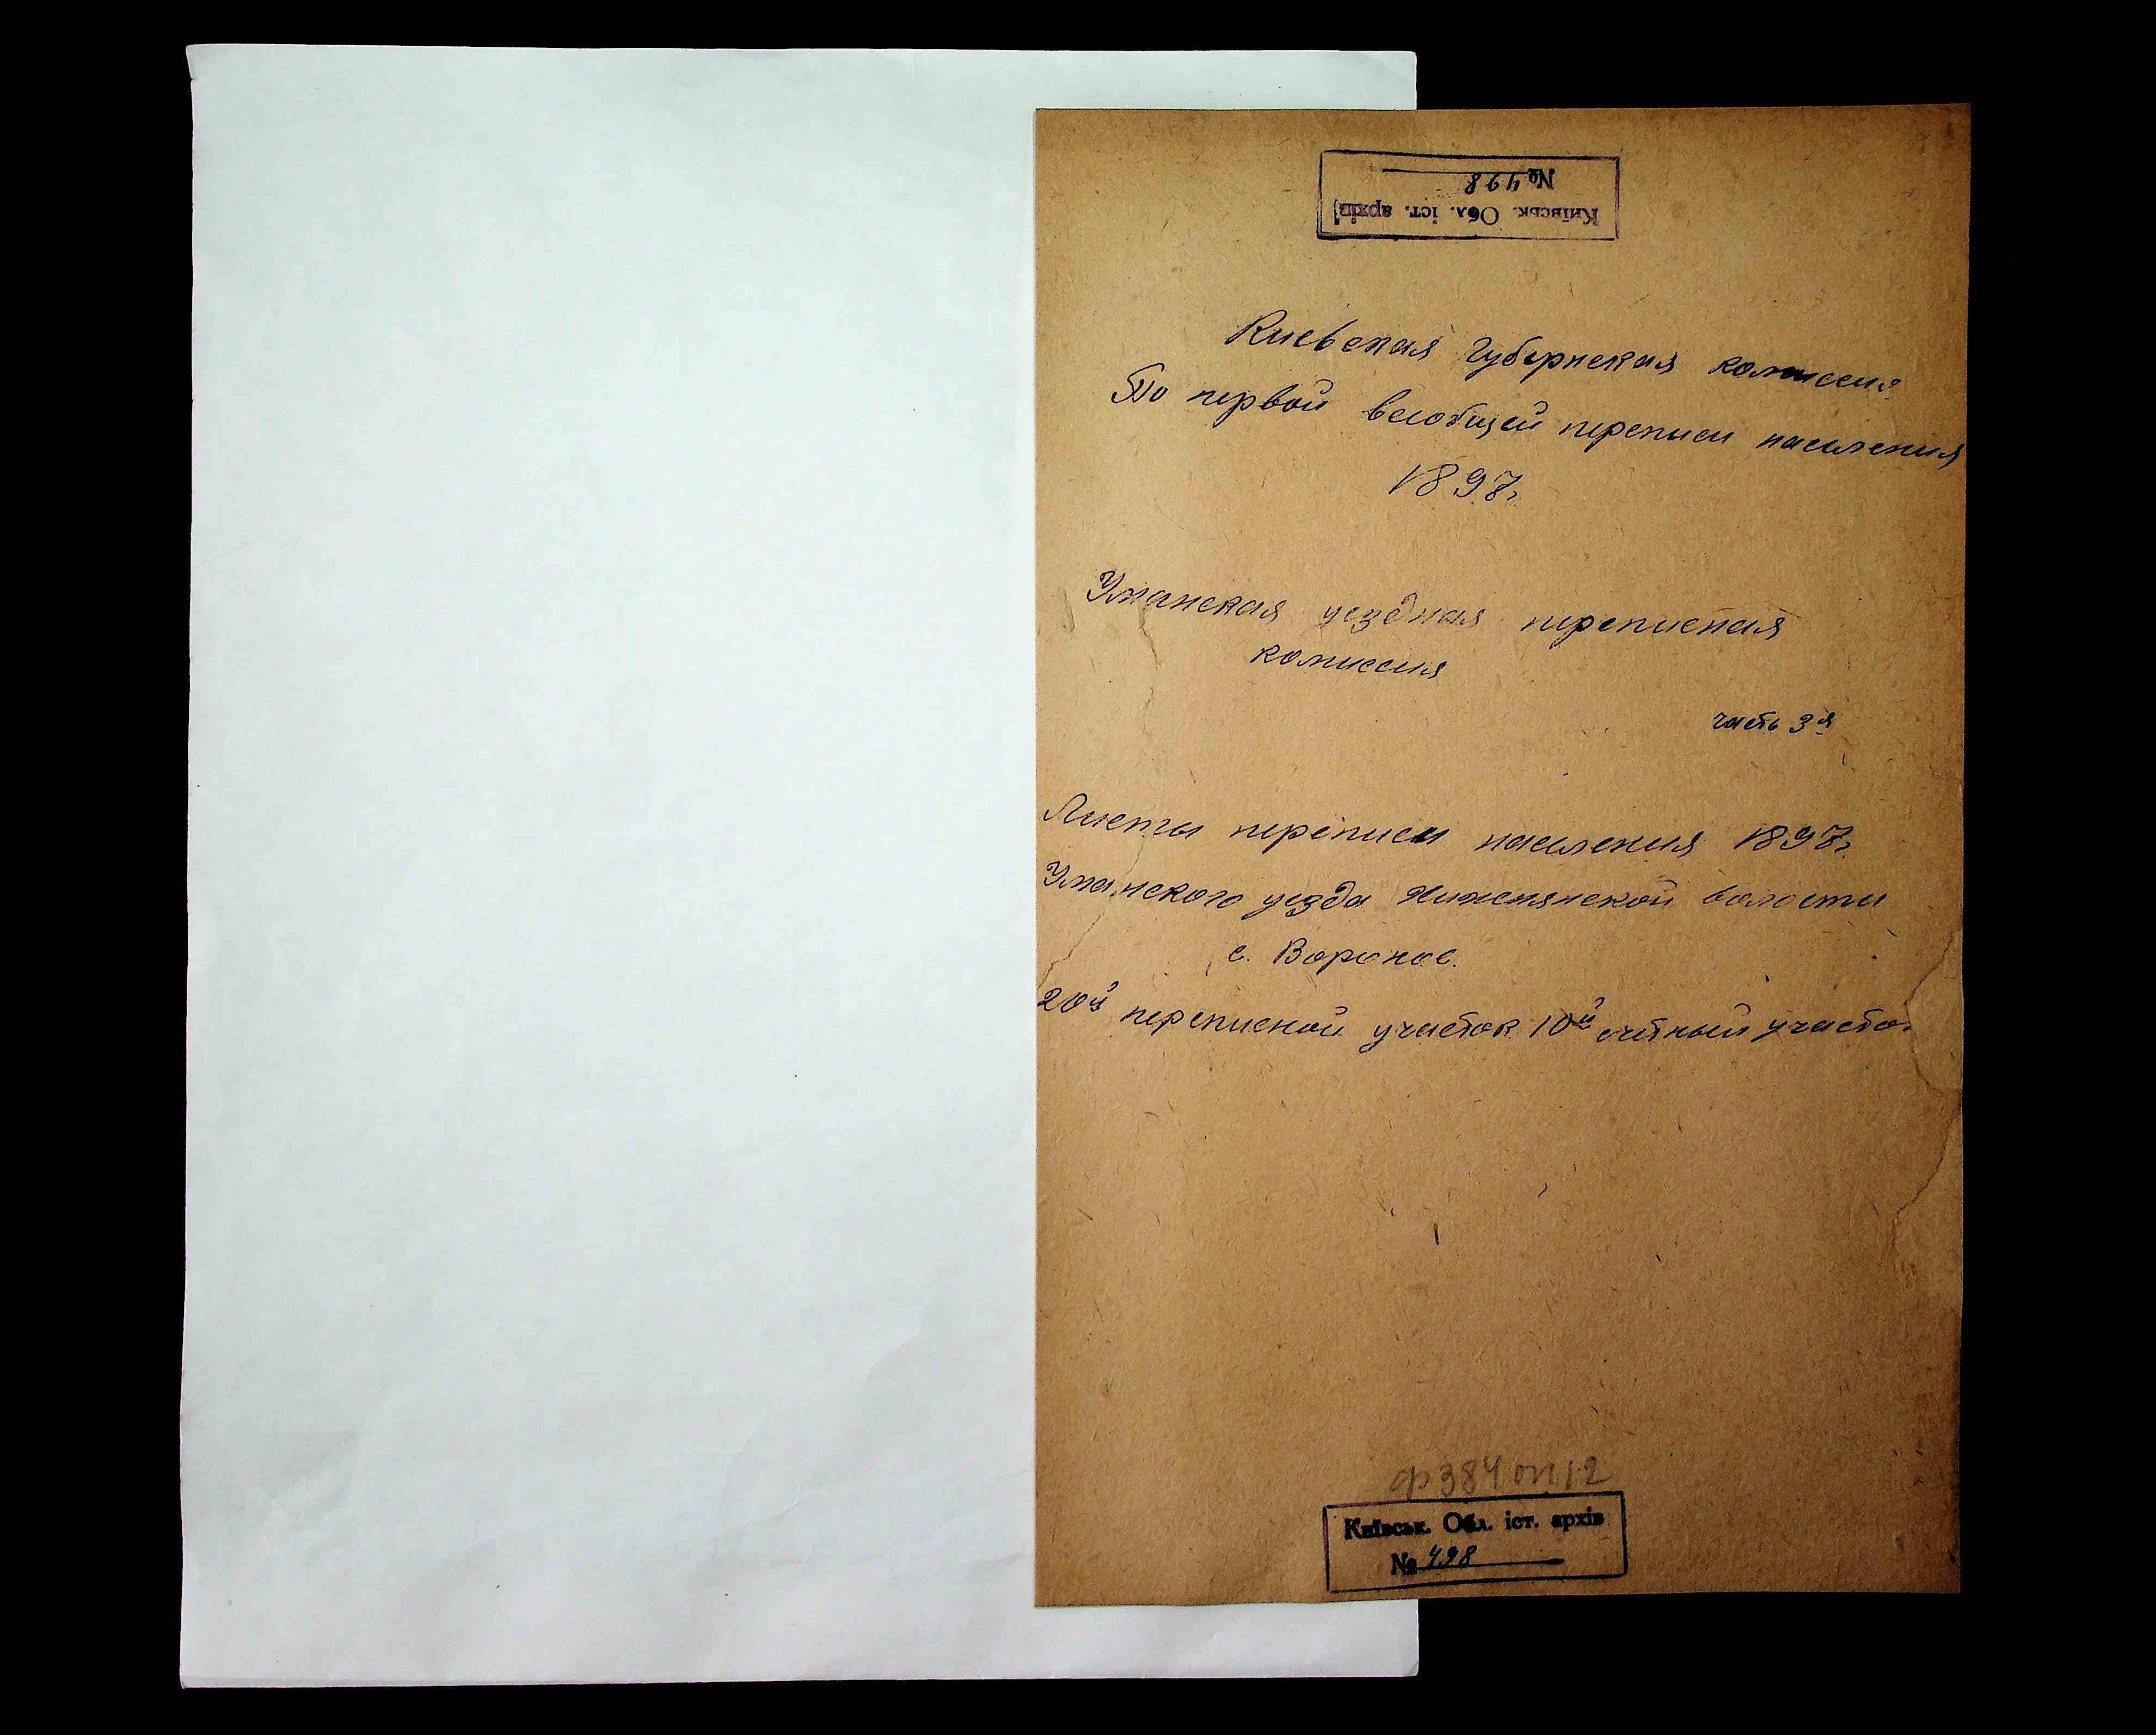 Київськ. Обл. іст. архів
№ 498
Киевская губернская комиссия
По первой всеобщей переписи населения
1897г.
Уманская уездная переписная
комиссия
часть 3я
Листы переписи населения 1897г.
Уманского уезда волости
с. Вороное.
20й переписной участок 10й счётный участо
ф 384 оп 12
Київськ. Обл. іст. архів
№ 498